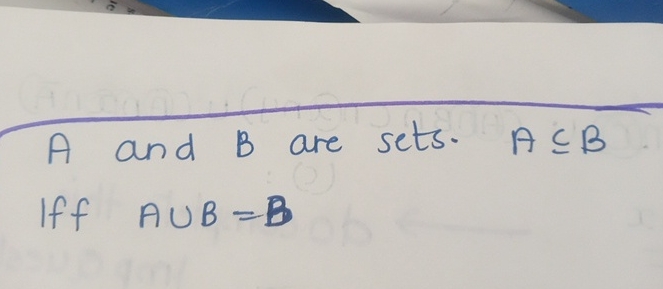 A and B are sets. A ⊆ B
Iff A ∪ B = B